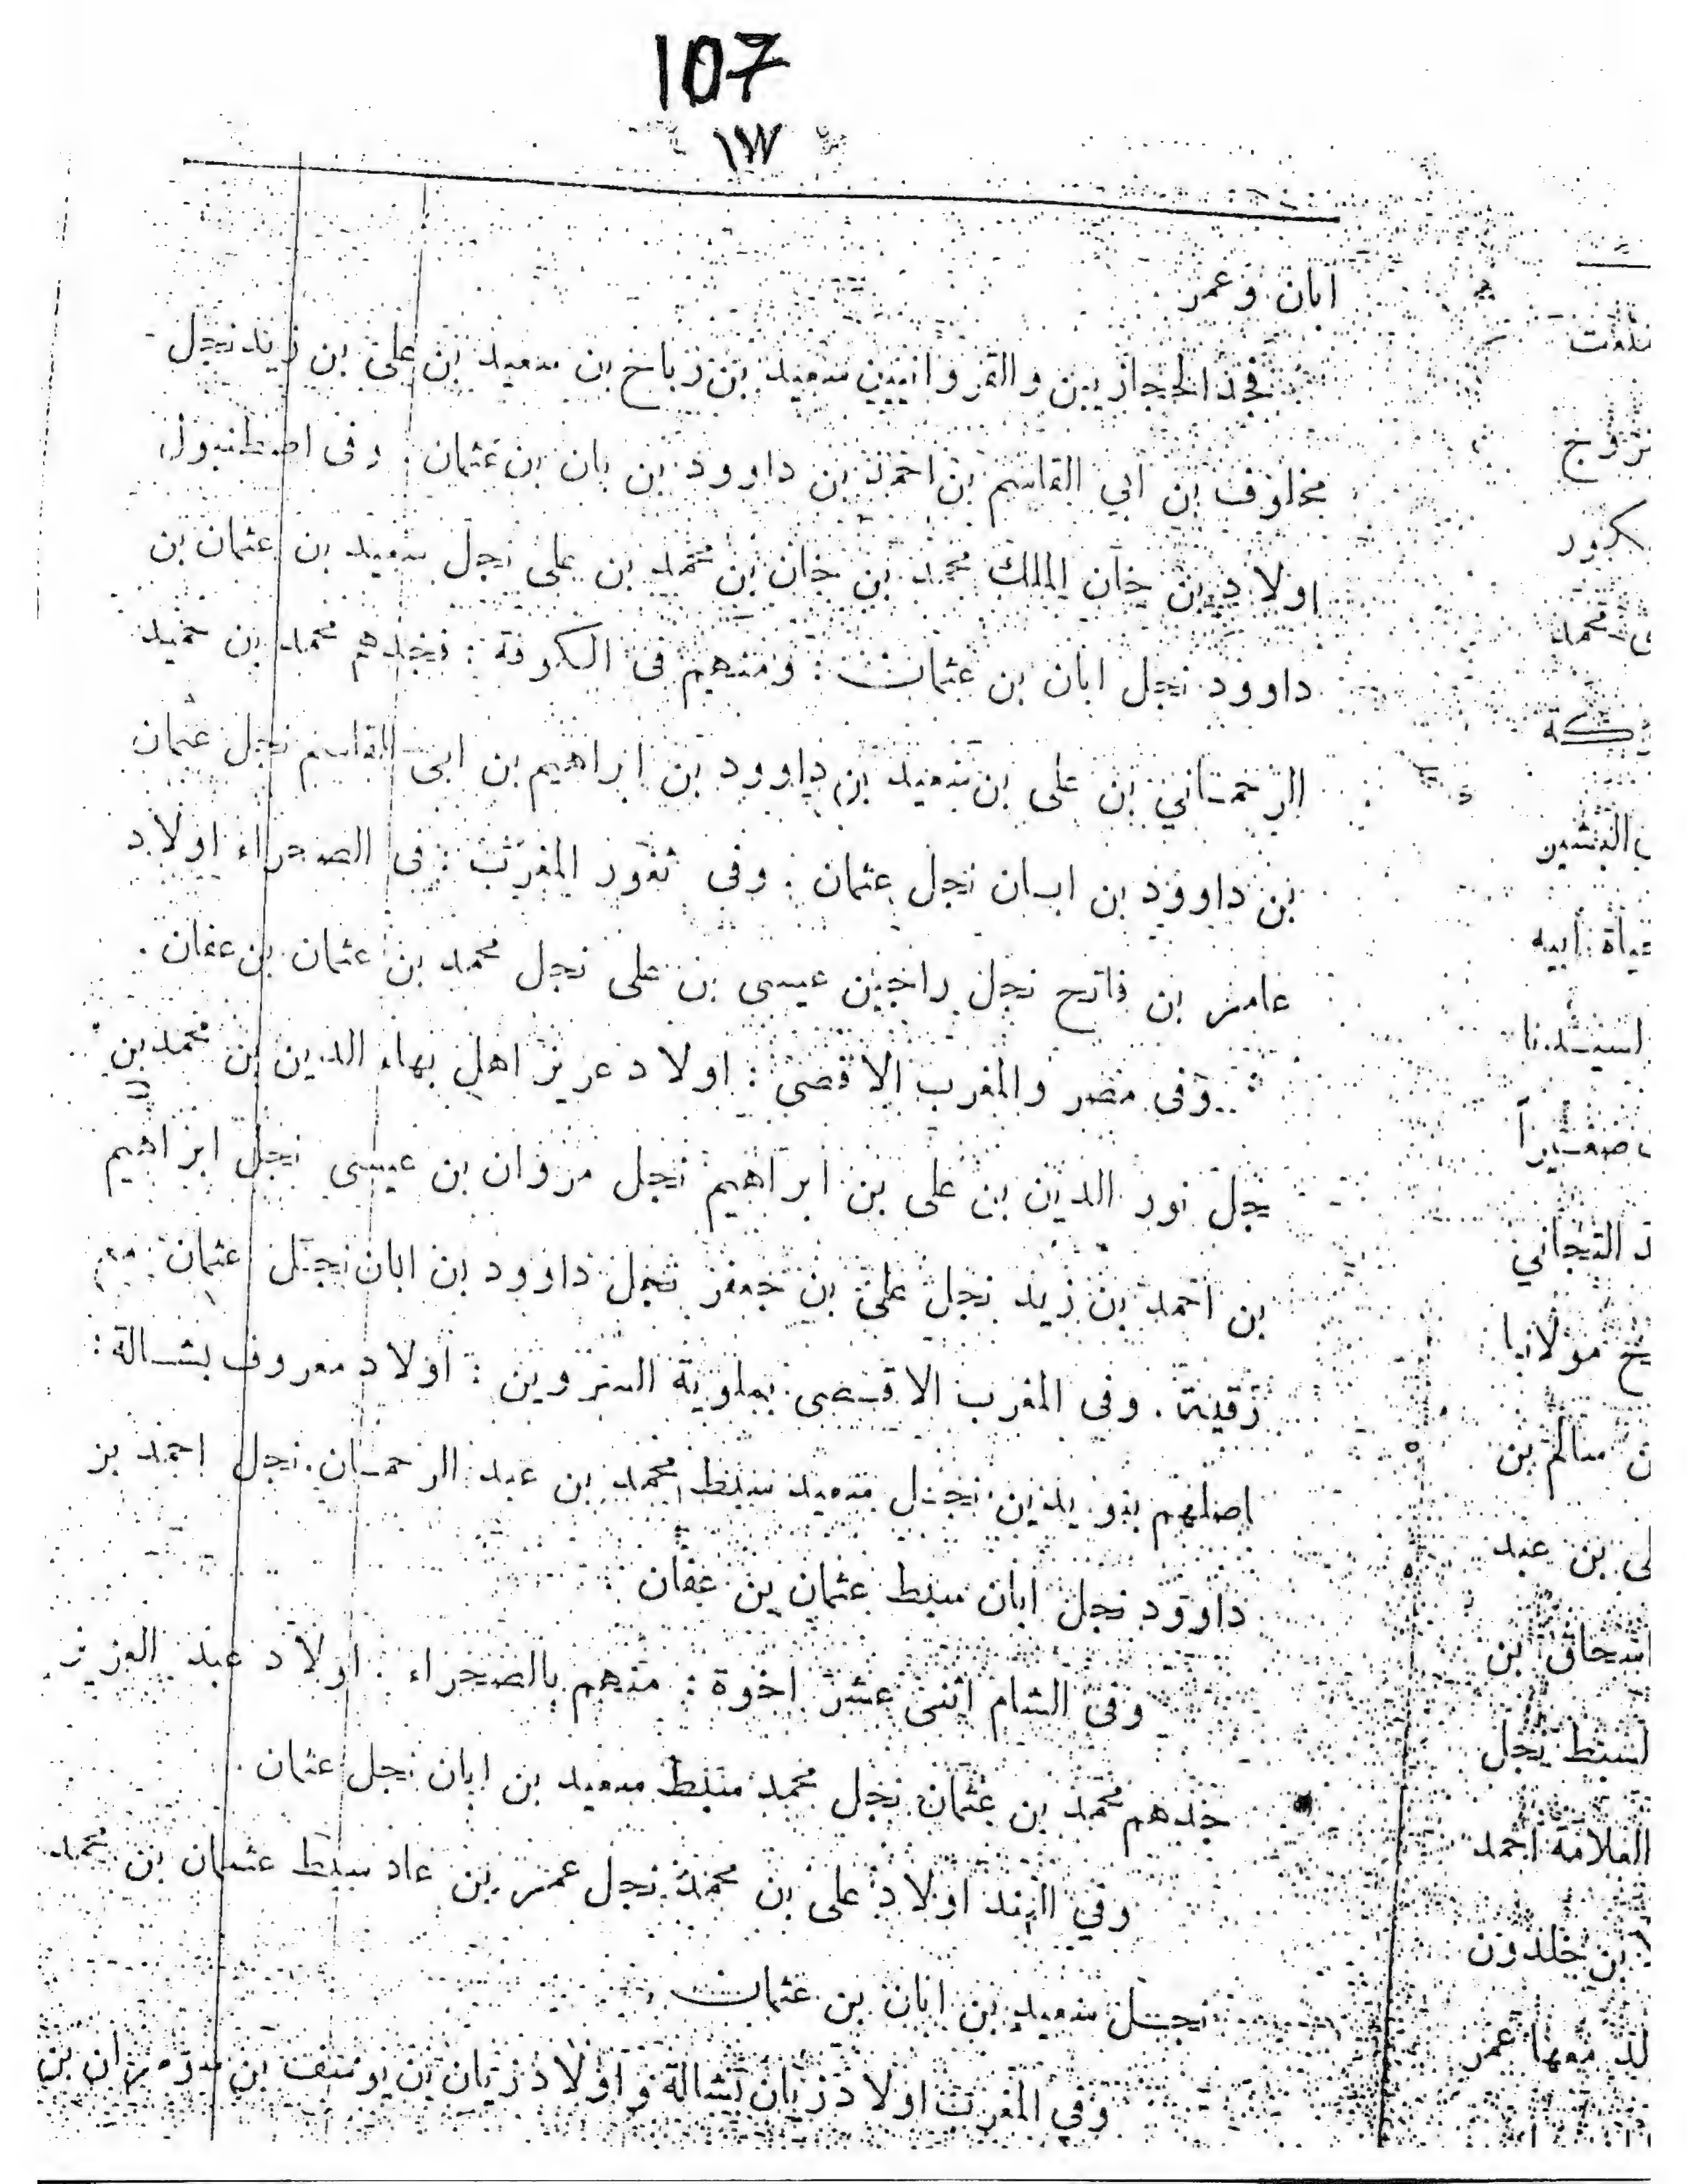 107
ابان وعمر
فخذ الحجازيين والتمروانيين سعيد بن رباح بن سعيد بن على بن زيد نجل
مخلوف بن ابي القاسم بن احمد بن داوود بن بان بن عثمان . وفى اصطنبول
اولاد بن خان الملك محمد بن خان بن محمد بن على نجل سعيد بن عثمان بن
داوود نجل ابان بن عثمان : ومنهم فى الكوفة : فجدهم محمد بن حميد
الرحماني بن على بن سعيد بن داوود بن ابراهيم بن ابى القاسم نجل عثمان
بن داوود بن ابان نجل عثمان . وفى ثغور المغرب : فى الصحراء اولاد
عامر بن فاتح نجل راجين عيسى بن على نجل محمد بن عثمان بن عفان .
وفى مصر والمغرب الاقصى : اولاد عزيز اهل بهاء الدين بن محمد بن
نجل نور الدين بن على بن ابراهيم نجل مروان بن عيسى نجل ابراهيم
بن احمد بن زيد نجل على بن جعفر نجل داوود بن ابان نجل عثمان
رقية . وفى المغرب الاقصى بملوية الستروين : اولاد معروف بشالة :
اصلهم بنو يدين نجل سعيد سبط محمد بن عبد الرحمان نجل احمد بن
داوود نجل ابان سبط عثمان بن عفان
وفى الشام اثنى عشر اخوة : منهم بالصحراء . اولاد عبد العزيز
جدهم محمد بن عثمان نجل محمد سبط سعيد بن ابان نجل عثمان .
وفي الهند اولاد على بن محمد نجل عمر بن عاد سبط عثمان بن محمد
نجل سعيد بن ابان بن عثمان
وفي المغرب اولاد زيان بشالة واولاد زيان بن يوسف بن بن
تزوج
محمد
البشير
ابيه
صغيراً
التجاني
مولانا
سالم بن
بن عبد
اسحاق بن
لسبط نجل
العلامة احمد
بن خلدون
معها عمر